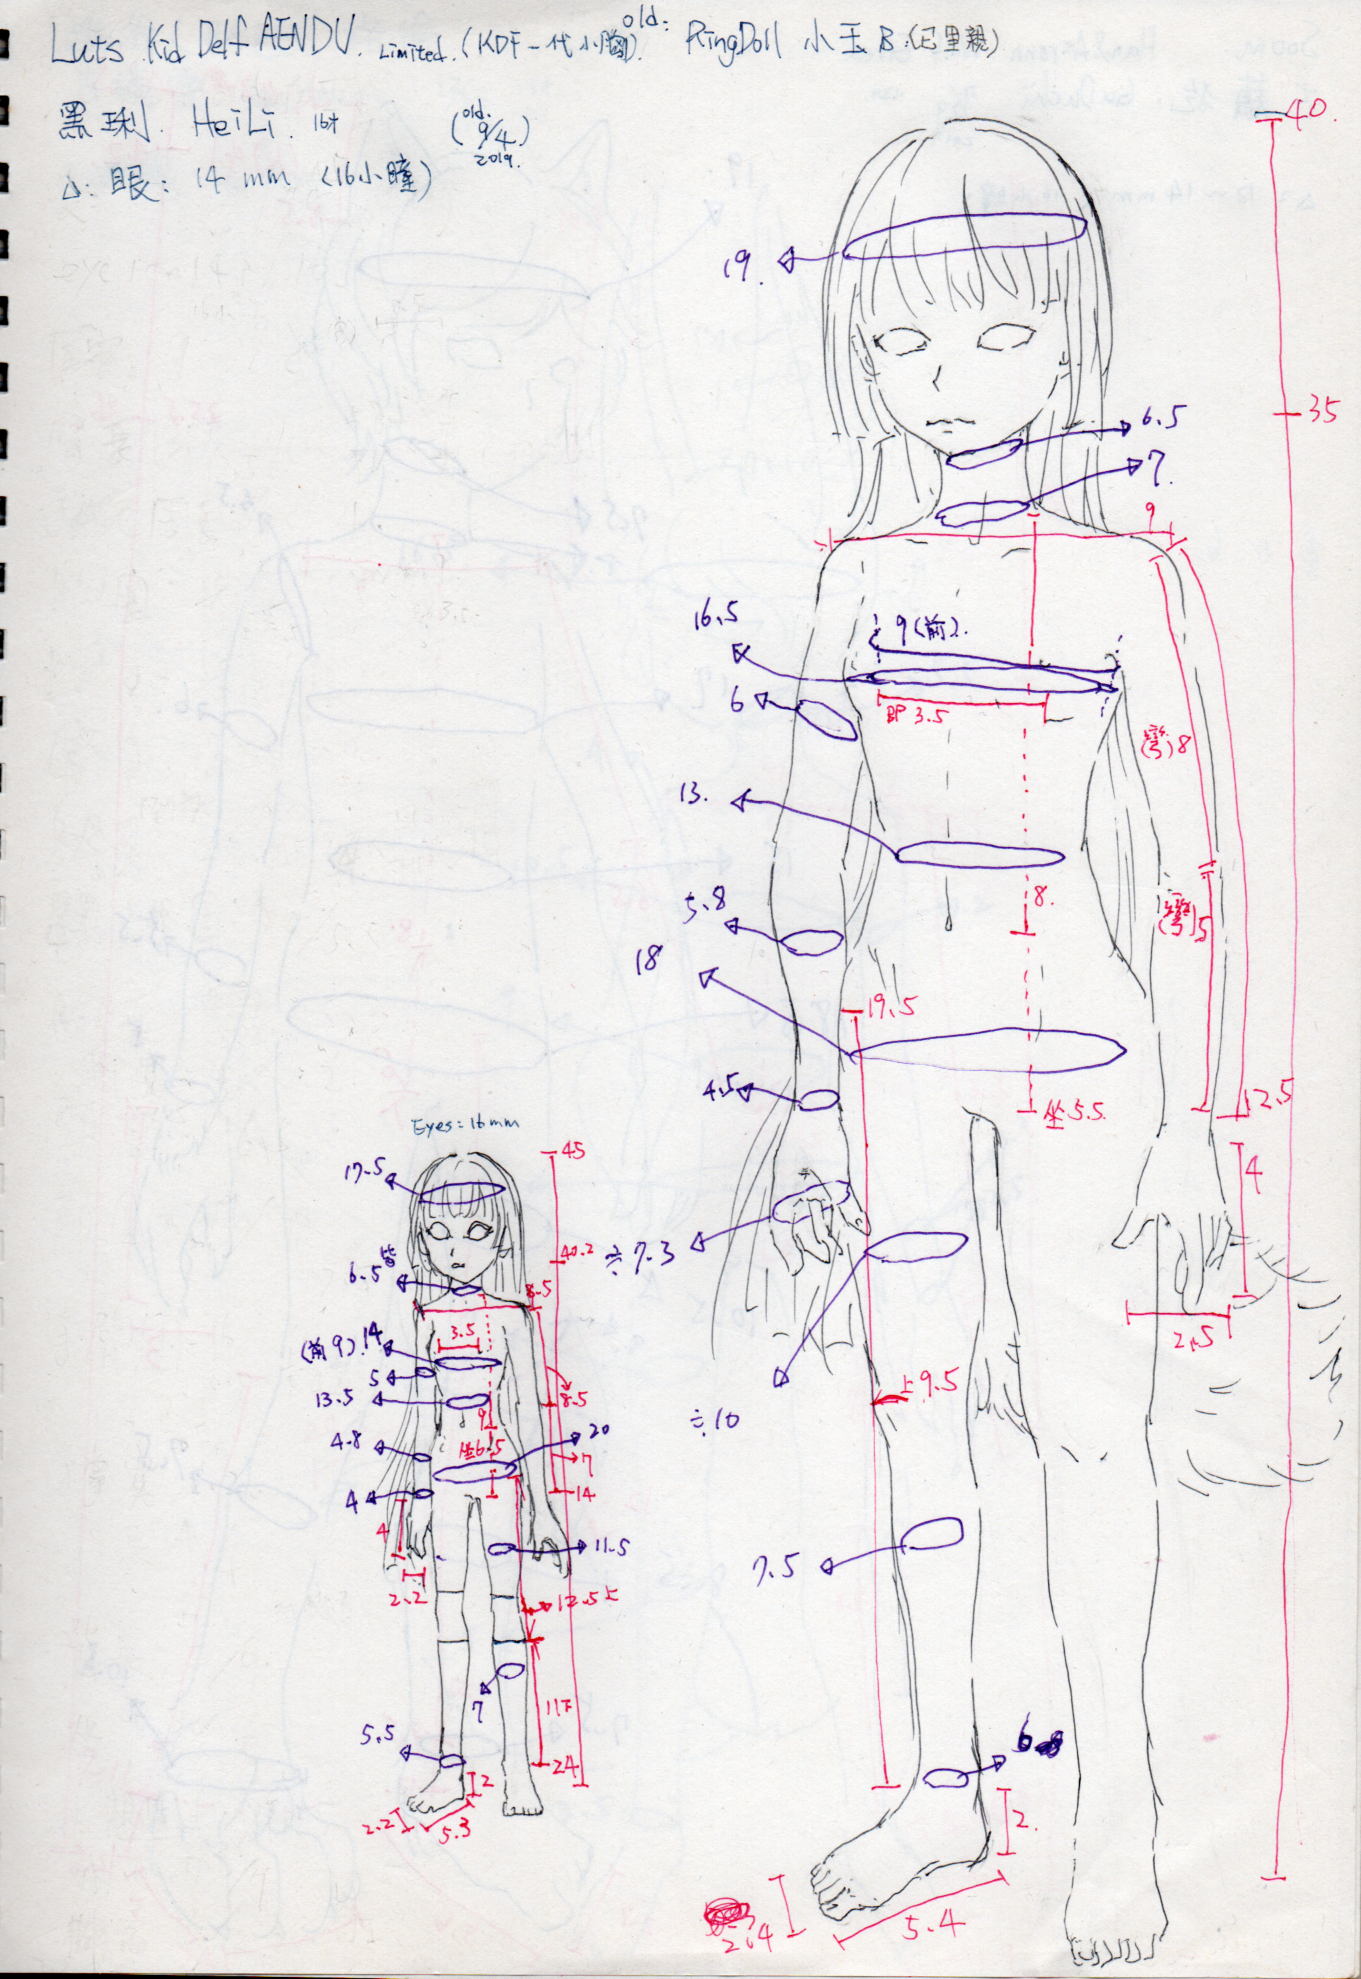 Luts Kid Delf AENDU. Limited. (KDF一代小胸). old: RingDoll 小玉B (已里親)
黑琍. HeiLi. 16才 (old. 9/4) 2019.
△: 眼: 14 mm (16小瞳)
40.
35
19.
6.5
7.
9
16.5
9(前).
6
BP 3.5
(彎)8
13.
8.
5.8
(彎)5
18
19.5
4.5
坐5.5.
12.5
4
≒7.3
2.5
上9.5
≒10
7.5
6
2.
2.4
5.4
Eyes=16mm
45
17.5
40.2
6.5皆
8.5
(前9).14
3.5
5
13.5
8.5
9
4.8
坐6.5
20
7
4
14
4
11.5
2.2
12.5上
7
11下
5.5
24
2
2.2
5.3